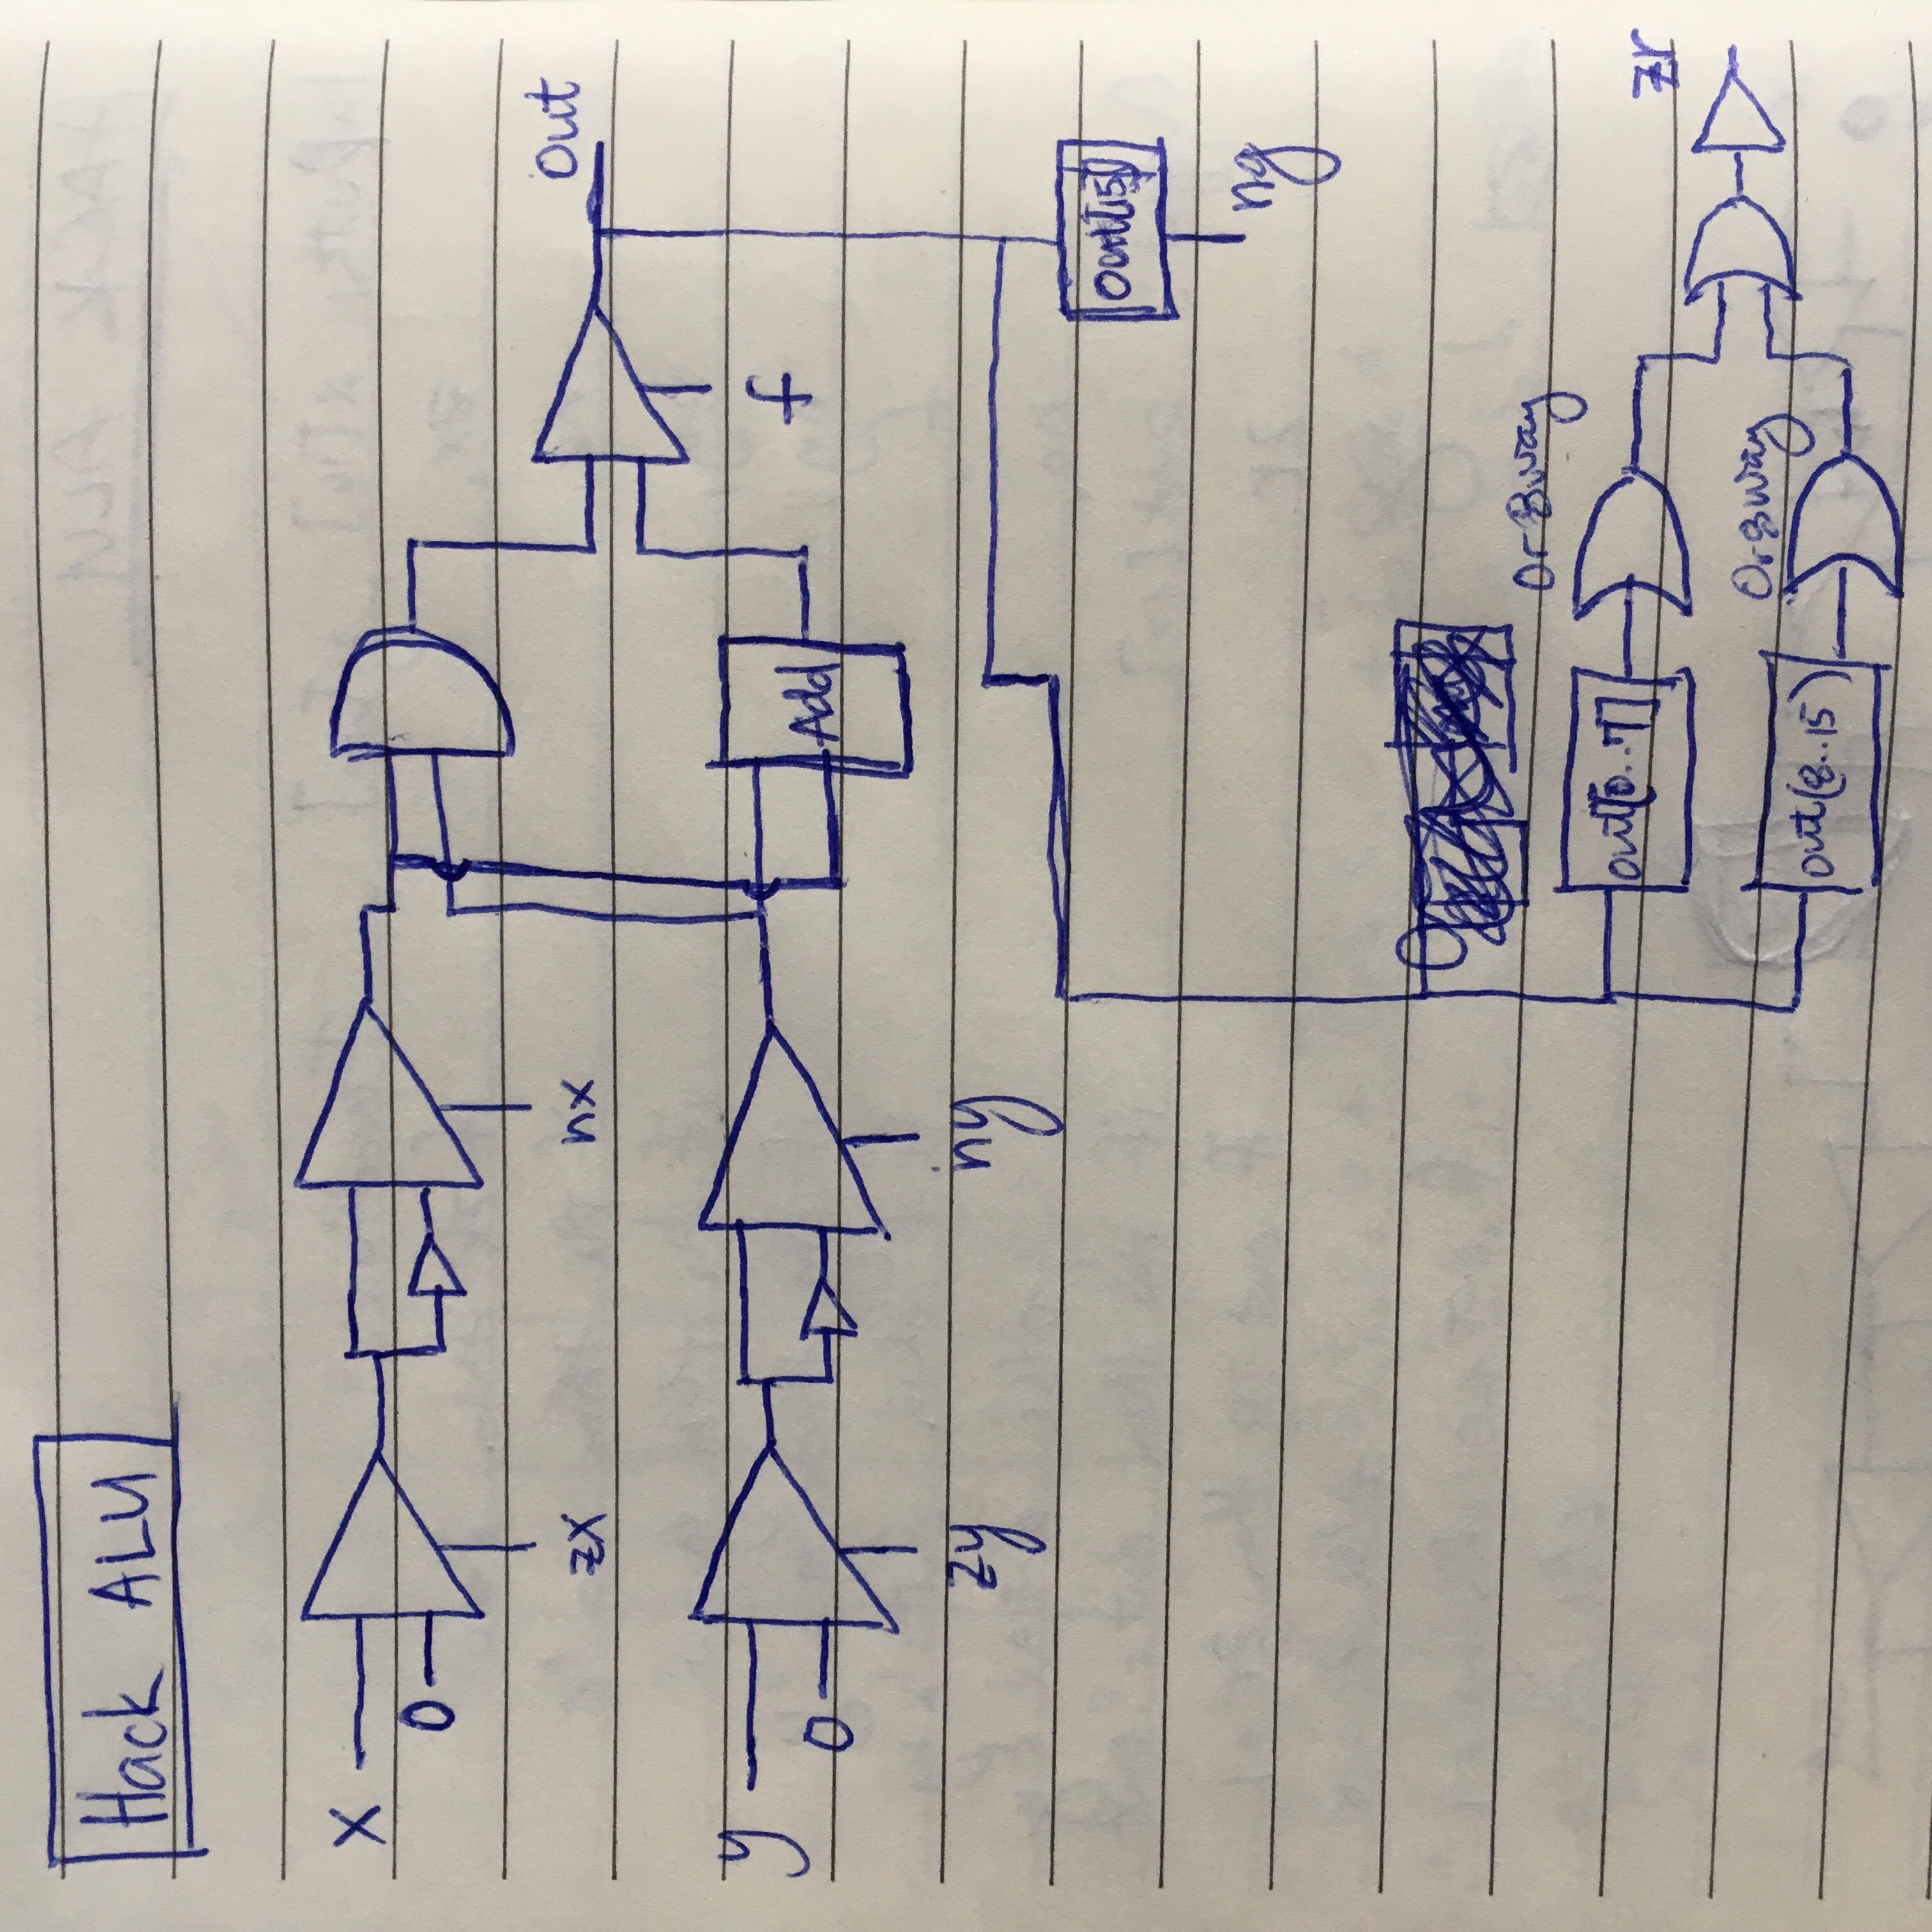 Hack ALU
x
0
zx
nx
out
f
y
0
Add
zy
ny
out[15]
ng
Or8way
out[0..7]
zr
Or8way
out(8..15)